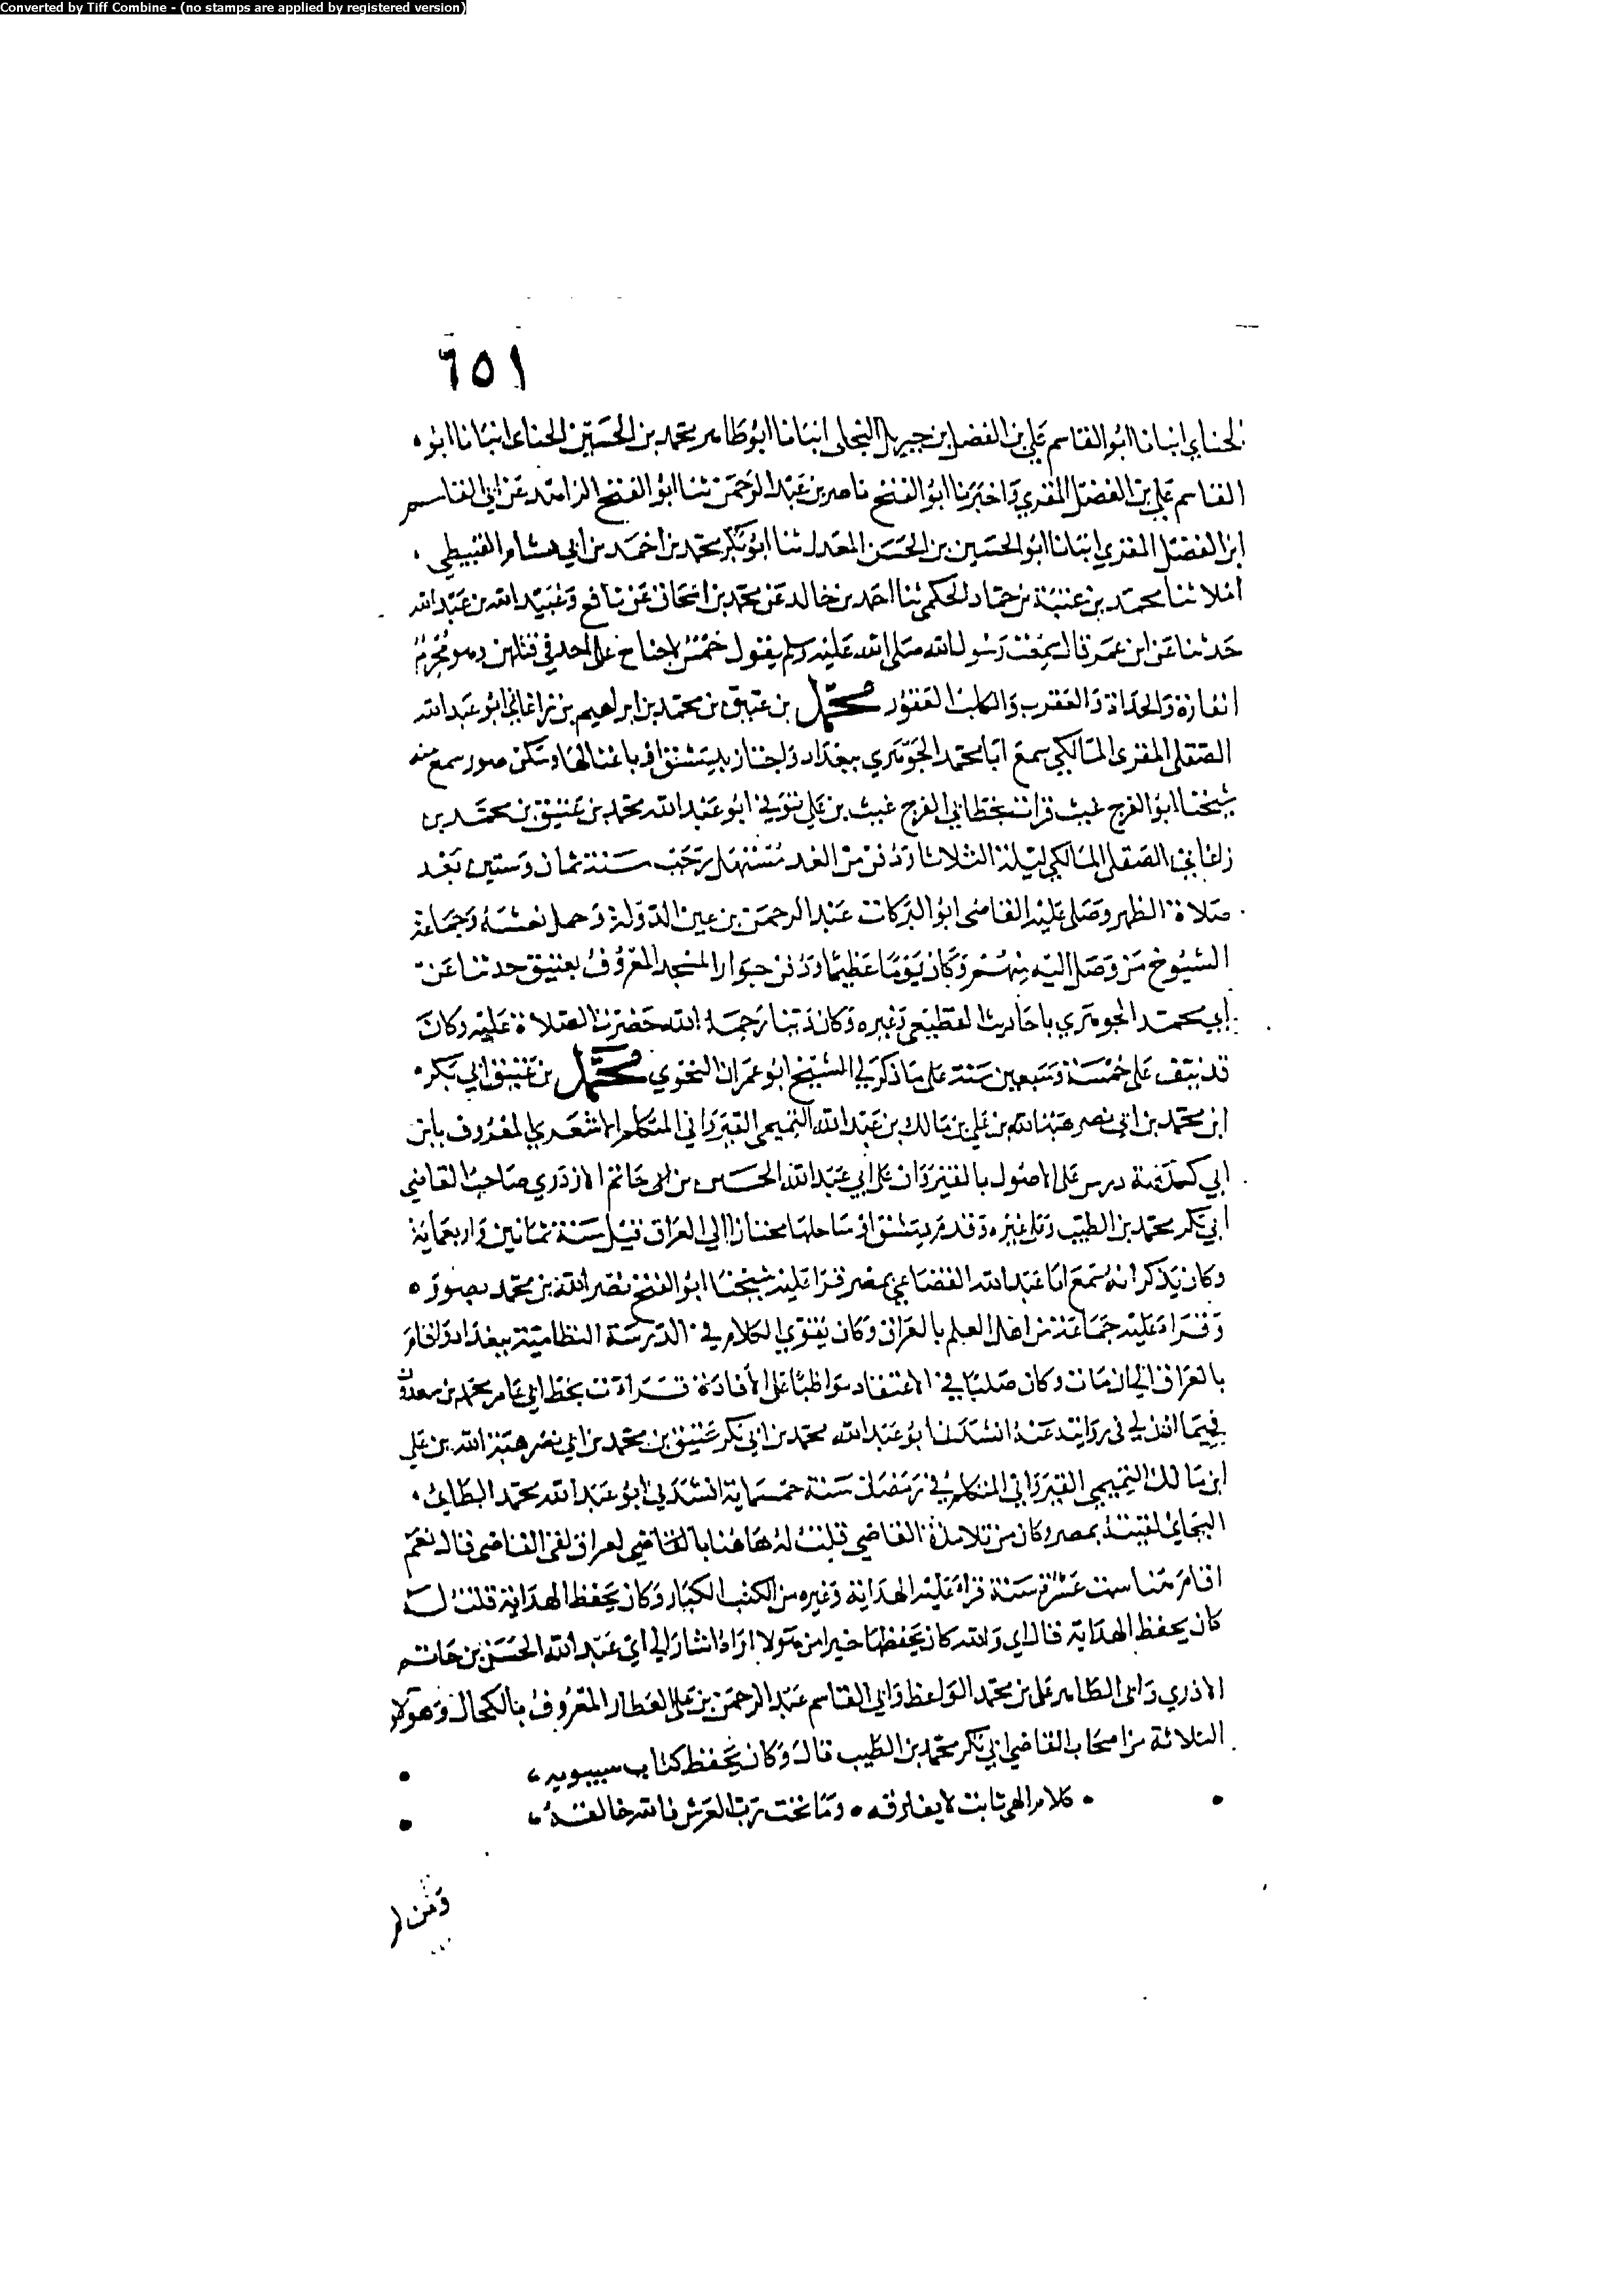 Converted by Tiff Combine - (no stamps are applied by registered version)
٦٥١
الحنائي انبانا ابو القاسم علي بن الفضل بن جبريل البجلي انبانا ابو طاهر محمد بن الحسين الحنائي انبانا ابو
القاسم علي بن الفضل المقري واخبرنا ابو الفتح ناصر بن عبد الرحمن ثنا ابو الفتح الزاهد عن ابي القاسم
ابن الفضل المقري انبانا ابو الحسين بن الحسن المعدل ثنا ابو بكر محمد بن احمد بن ابي هشام القنبيطي
املا ثنا محمد بن عنبة بن حماد الحكمي ثنا احمد بن خالد عن محمد بن اسحاق عن نافع وعبيد الله بن عبد الله
حدثنا عن ابن عمر قال سمعت رسول الله صلى الله عليه وسلم يقول خمس لاجناح على احد في قتلهن وهو محرم
الفارة والحداة والعقرب والكلب العقور محمد بن عتيق بن محمد بن ابراهيم بن زاغاني ابو عبد الله
الصقلي المقري المالكي سمع ابا محمد الجوهري ببغداد واجتاز بدمشق او باعمالها وسكن صور سمع منه
شيخنا ابو الفرج غيث قرات بخط ابي الفرج غيث بن علي توفي ابو عبد الله محمد بن عتيق بن محمد بن
زاغاني الصقلي المالكي ليلة الثلاثا ودفن من الغد مستهل رجب سنة ثمان وستين بعد
صلاة الظهر وصلى عليه القاضي ابو البركات عبد الرحمن بن عين الدولة وحمل نعشه وجماعة
الشيوخ من وصل اليه منهم وكان يوما عظيما ودفن جوار المسجد المعروف بعتيق حدثنا عن
ابي محمد الجوهري باحاديث القطيعي وغيره وكان دينا رحمه الله حضرت الصلاة عليه وكان
قد نيف على خمسة وسبعين سنة على ما ذكر لي الشيخ ابو عمران النحوي محمد بن عتيق ابي بكر
ابن محمد بن ابي نصر هبة الله بن علي بن مالك بن عبد الله التميمي القيرواني المتكلم الاشعري المعروف بابن
ابي كدية درس على الاصول بالقيروان على ابي عبد الله الحسين بن حاتم الازدري صاحب القاضي
ابي بكر محمد بن الطيب وعلى غيره وقدم بدمشق او ساحلها مجتازا الى العراق قبل سنة ثمانين واربعماية
وكان يذكر انه سمع ابا عبد الله القضاعي بمصر قرا عليه شيخنا ابو الفتح نصر الله بن محمد بصور
وقرا عليه جماعة من اهل العلم بالعراق وكان يقري الكلام في المدرسة النظامية ببغداد واقام
بالعراق الى ان مات وكان صلبا في الاعتقاد مواظبا على الافادة قرات بخط ابي عامر محمد بن سعدون
فيما اذن لي في روايته عنه انشدنا ابو عبد الله محمد بن ابي بكر عتيق بن محمد بن ابي نصر هبة الله بن علي
ابن مالك التميمي القيرواني المتكلم في رمضان سنة خمسماية انشدني ابو عبد الله محمد الطائي
البجاني لقيته بمصر وكان من تلامذة القاضي قلت له هاهنا بالقاضي لعراق لقى القاضي قال نعم
اقام هنا ست عشرة سنة قرا عليه الهداية وغيره من الكتب الكبار وكان يحفظ الهداية قلت له
كان يحفظ الهداية قال اي والله كان يحفظها خيرا من هولا اراد اشار الى ابي عبد الله الحسين بن حاتم
الاذري وابي الطاهر علي بن محمد الواعظ وابي القاسم عبد الرحمن بن علي العطار المعروف بالكحال وهولا
الثلاثة من اصحاب القاضي ابي بكر محمد بن الطيب قال وكان يحفظ كتاب سيبويه
كلام الهي ثابت لا يفارقه وما تحت رب العرش فالله خالقه
ومن لم